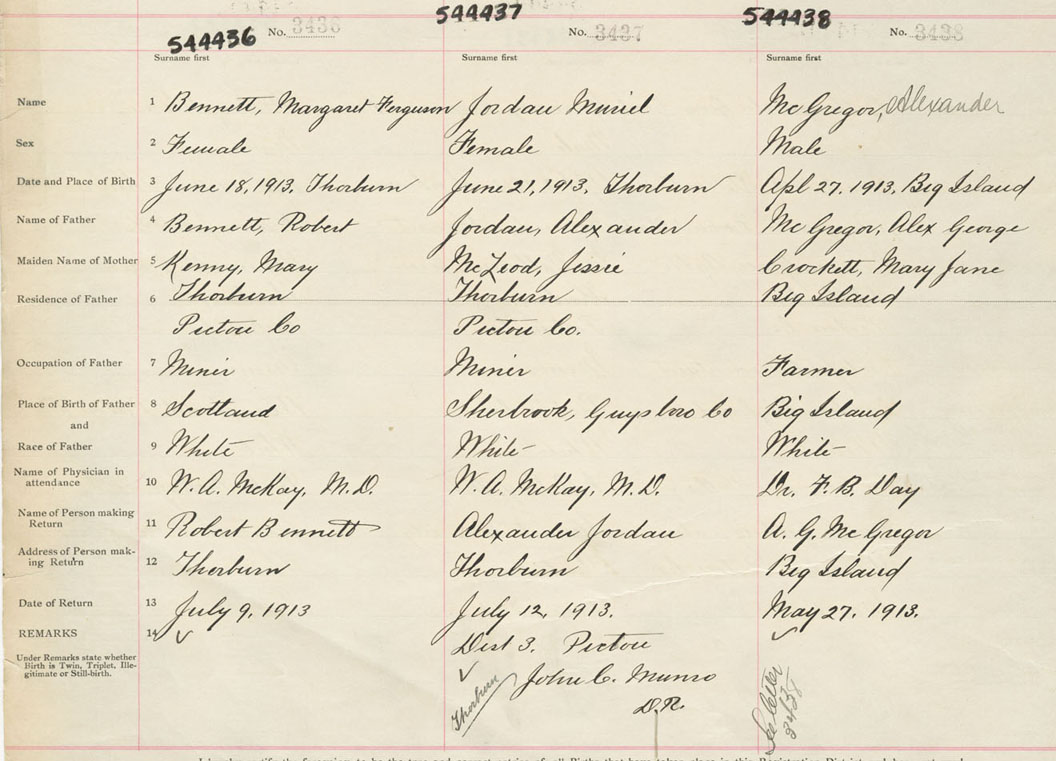 544436 No. 3436 544437 No. 3437 544438 No. 3438
Surname first Surname first Surname first
Name 1 Bennett, Margaret Ferguson Jordan Muriel McGregor, Alexander
Sex 2 Female Female Male
Date and Place of Birth 3 June 18, 1913, Thorburn June 21, 1913, Thorburn Apl 27, 1913, Big Island
Name of Father 4 Bennett, Robert Jordan, Alexander McGregor, Alex George
Maiden Name of Mother 5 Kenny, Mary McLeod, Jessie Crockett, Mary Jane
Residence of Father 6 Thorburn Thorburn Big Island
Pictou Co Pictou Co.
Occupation of Father 7 Miner Miner Farmer
Place of Birth of Father 8 Scotland Sherbrook, Guysboro Co Big Island
and
Race of Father 9 White White White
Name of Physician in
attendance 10 W. A. McKay, M.D. W. A. McKay, M.D. Dr. F. B. Day
Name of Person making
Return 11 Robert Bennett Alexander Jordan A. G. McGregor
Address of Person mak-
ing Return 12 Thorburn Thorburn Big Island
Date of Return 13 July 9, 1913 July 12, 1913. May 27, 1913.
REMARKS 14 Dist 3. Pictou
Under Remarks state whether
Birth is Twin, Triplet, Ille-
gitimate or Still-birth.
John C. Munro
D.R.
Thorburn
See letter
3438